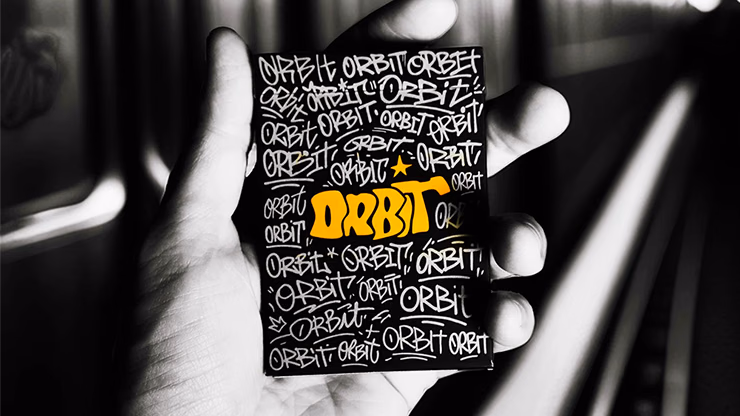 ORBIT ORBIT ORBIT
ORBIT ORBIT ORBIT
ORBIT ORBIT ORBIT ORBIT
ORBIT ORBIT ORBIT ORBIT
ORBIT ORBIT ORBIT
ORBIT
ORBIT
ORBIT ORBIT ORBIT
ORBIT ORBIT ORBIT
ORBIT ORBIT
ORBIT ORBIT ORBIT ORBIT